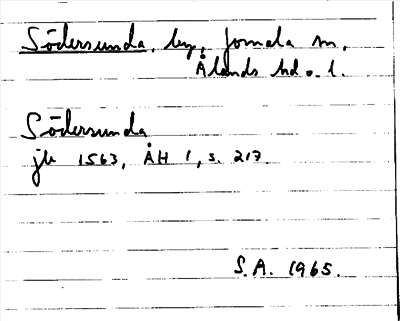 Södersunda, by, Jomala sn,
Ålands hd o. l.
Södersunda
jb 1563, ÅH 1, s. 217.
S.A. 1965.